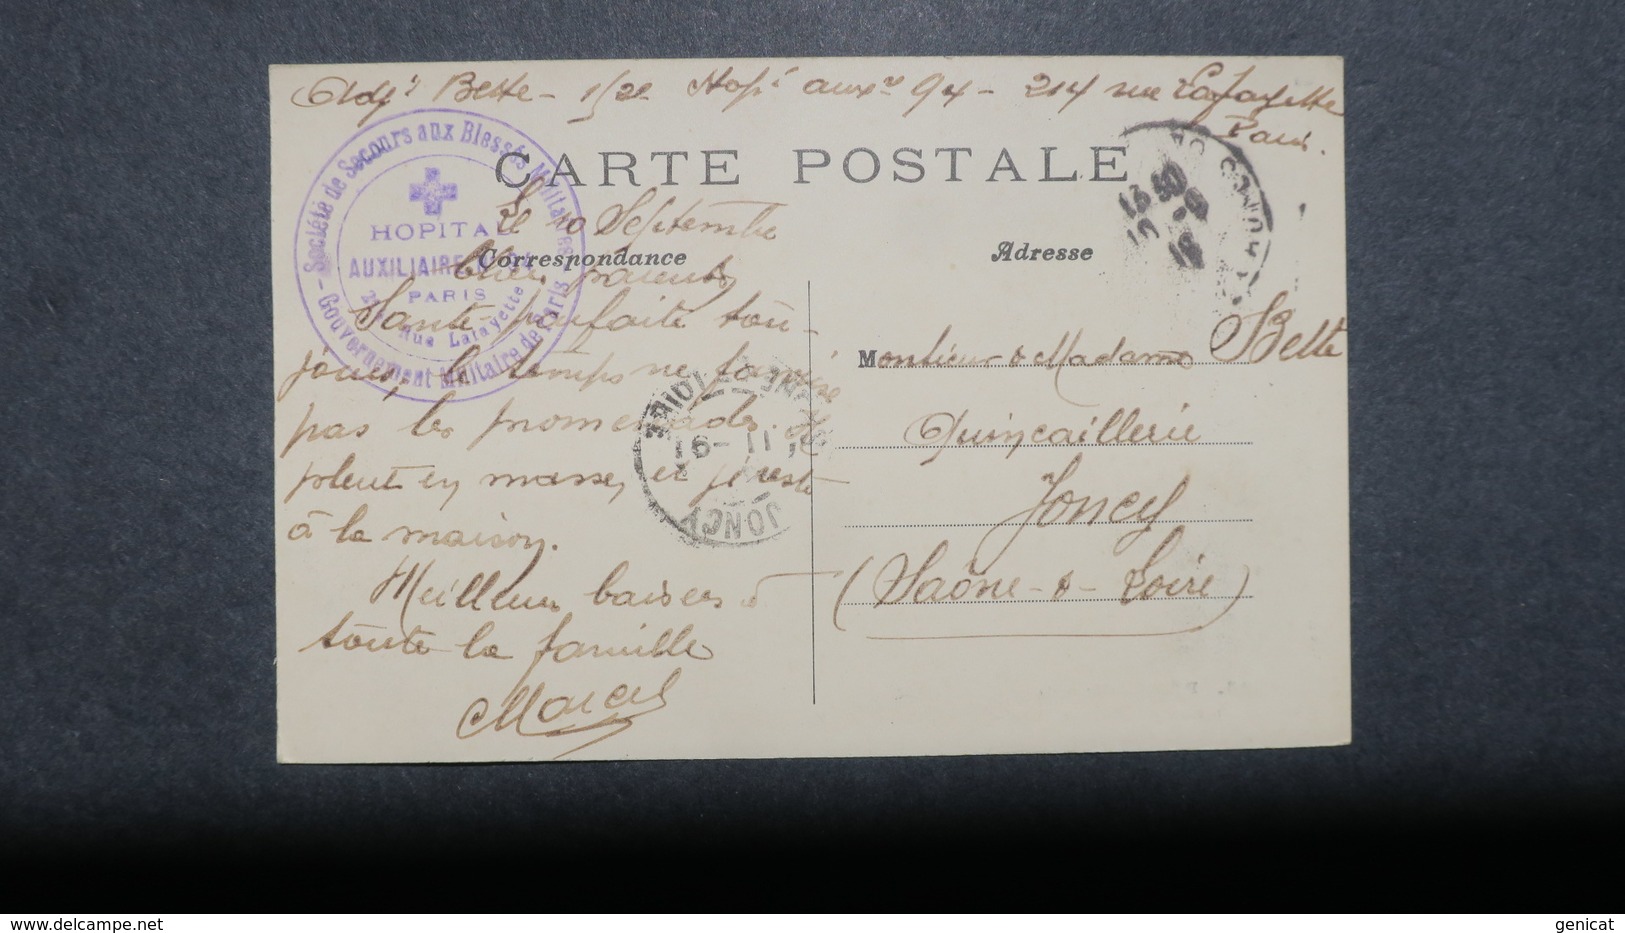 Adjt Bette - 152e Hopl auxre 94 - 214 rue Lafayette
Paris.
CARTE POSTALE
Société de Secours aux Blessés Militaires
Gouvernement Militaire de Paris
HOPITAL
AUXILIAIRE
PARIS
Rue Lafayette
Le 10 Septembre
Correspondance
Adresse
Chers parents
Santé parfaite tou-
jours, le temps ne favorise
pas les promenades. Il
pleut en masse, et je reste
à la maison.
Meilleurs baisers à
toute la famille
Marcel
Monsieur & Madame Bette
Quincaillerie
Joncy
(Saône-&-Loire)
SAÔNE-ET-LOIRE
11 - 9
16
JONCY
genicat